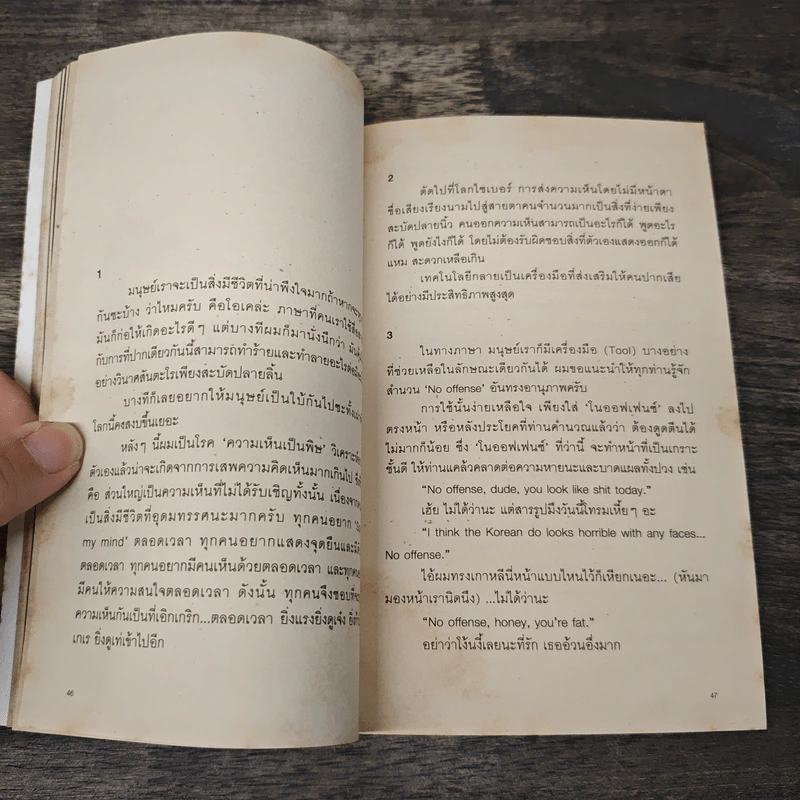 1
มนุษย์เราจะเป็นสิ่งมีชีวิตที่น่าพึงใจมากถ้าหาก
กันซะบ้าง ว่าไหมครับ คือโอเคล่ะ ภาษาที่คนเราใช้
มันก็ก่อให้เกิดอะไรดีๆ แต่บางทีผมก็มานั่งนึกว่า
กับการที่ปากเดียวกันนี้สามารถทำร้ายและทำลายอะไร
อย่างวินาศสันตะโรเพียงสะบัดปลายลิ้น
บางทีก็เลยอยากให้มนุษย์เป็นใบ้กันไปซะทั้ง
โลกนี้คงสงบขึ้นเยอะ
หลังๆ นี้ผมเป็นโรค ‘ความเห็นเป็นพิษ’
ตัวเองแล้วน่าจะเกิดจากการเสพความคิดเห็นมากเกินไป
คือ ส่วนใหญ่เป็นความเห็นที่ไม่ได้รับเชิญทั้งนั้น เนื่องจาก
เป็นสิ่งมีชีวิตที่อุดมทรรศนะมากครับ ทุกคนอยาก
my mind’ ตลอดเวลา ทุกคนอยากแสดงจุดยืนและ
ตลอดเวลา ทุกคนอยากมีคนเห็นด้วยตลอดเวลา และ
มีคนให้ความสนใจตลอดเวลา ดังนั้น ทุกคนจึงชอบที่
ความเห็นกันเป็นที่เอิกเกริก...ตลอดเวลา ยิ่งแรงยิ่งดูเจ๋ง
เกเร ยิ่งดูเท่เข้าไปอีก
46
2
ตัดไปที่โลกไซเบอร์ การส่งความเห็นโดยไม่มีหน้าตา
ชื่อเสียงเรียงนามไปสู่สายตาคนจำนวนมากเป็นสิ่งที่ง่ายเพียง
สะบัดปลายนิ้ว คนออกความเห็นสามารถเป็นอะไรก็ได้ พูดอะไร
ก็ได้ พูดยังไงก็ได้ โดยไม่ต้องรับผิดชอบสิ่งที่ตัวเองแสดงออกก็ได้
แหม สะดวกเหลือเกิน
เทคโนโลยีกลายเป็นเครื่องมือที่ส่งเสริมให้คนปากเสีย
ได้อย่างมีประสิทธิภาพสูงสุด
3
ในทางภาษา มนุษย์เราก็มีเครื่องมือ (Tool) บางอย่าง
ที่ช่วยเหลือในลักษณะเดียวกันได้ ผมขอแนะนำให้ทุกท่านรู้จัก
สำนวน ‘No offense’ อันทรงอานุภาพครับ
การใช้นั้นง่ายเหลือใจ เพียงใส่ ‘โนออฟเฟนซ์’ ลงไป
ตรงหน้า หรือหลังประโยคที่ท่านคำนวณแล้วว่า ต้องดูดตีนได้
ไม่มากก็น้อย ซึ่ง ‘โนออฟเฟนซ์’ ที่ว่านี้ จะทำหน้าที่เป็นเกราะ
ชั้นดี ให้ท่านแคล้วคลาดต่อความหายนะและบาดแผลทั้งปวง เช่น
“No offense, dude, you look like shit today.”
เฮ้ย ไม่ได้ว่านะ แต่สารรูปมึงวันนี้โทรมเหี้ยๆ อะ
“I think the Korean do looks horrible with any faces...
No offense.”
ไอ้ผมทรงเกาหลีนี่หน้าแบบไหนไว้ก็เหียกเนอะ... (หันมา
มองหน้าเรานิดนึง) ...ไม่ได้ว่านะ
“No offense, honey, you’re fat.”
อย่าว่าโง้นงี้เลยนะที่รัก เธออ้วนอึ่งมาก
47